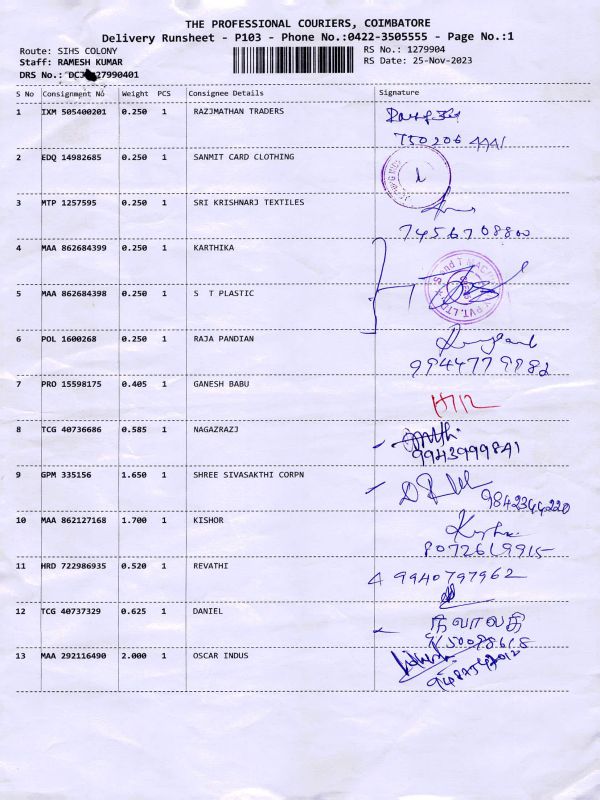 THE PROFESSIONAL COURIERS, COIMBATORE
Delivery Runsheet - P103 - Phone No.:0422-3505555 - Page No.:1
Route: SIHS COLONY RS No.: 1279904
Staff: RAMESH KUMAR RS Date: 25-Nov-2023
DRS No.: 27990401
S No Consignment No Weight PCS Consignee Details Signature
1 IXM 505400201 0.250 1 RAZJMATHAN TRADERS
2 EDQ 14982685 0.250 1 SANMIT CARD CLOTHING
3 MTP 1257595 0.250 1 SRI KRISHNARJ TEXTILES
7456708800
4 MAA 862684399 0.250 1 KARTHIKA
5 MAA 862684398 0.250 1 S T PLASTIC
6 POL 1600268 0.250 1 RAJA PANDIAN
9944779982
7 PRO 15598175 0.405 1 GANESH BABU
8 TCG 40736686 0.585 1 NAGAZRAZJ
9943999841
9 GPM 335156 1.650 1 SHREE SIVASAKTHI CORPN
9842344220
10 MAA 862127168 1.700 1 KISHOR
8072619915
11 HRD 722986935 0.520 1 REVATHI
9940797962
12 TCG 40737329 0.625 1 DANIEL
13 MAA 292116490 2.000 1 OSCAR INDUS